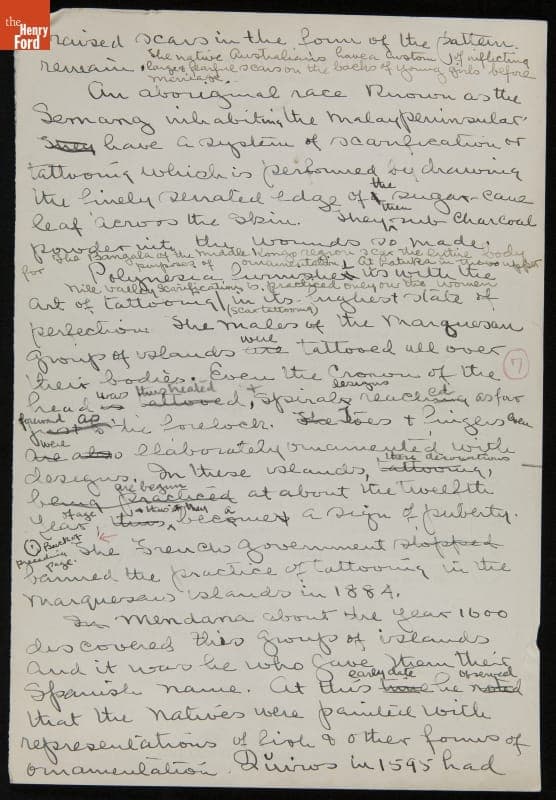 the
Henry
Ford
raised scars in the form of the pattern
remain. The native Australians have a custom of inflicting
large & fearful scars on the backs of young girls before
marriage.
An aboriginal race known as the
Semang inhabiting the Malay peninsular
they have a system of scarification or
tattooing which is performed by drawing
the finely serrated edge of the sugar-cane
leaf across the skin. They then rub charcoal
powder into the wounds so made.
The Bangala of the Middle Kongo region scar the entire body
for purposes of ornamentation. At in the upper
Nile valley scarification is practiced only on the women
Polynesia furnishes us with the
art of tattooing (scar tattooing) in its highest state of
perfection. The males of the Marquesan
group of islands were tattooed all over
their bodies. Even the crown of the
head was thus treated, & spiral designs reached as far
forward as the forelock. The toes & fingers even
were elaborately ornamented with
designs. In these islands, these decorations tattooing,
are begun being practiced at about the twelfth
year of age & thus they become a sign of puberty.
① Back of
preceding
page.
7
The French government stopped
banned the practice of tattooing in the
Marquesans islands in 1884.
In Mendana about the year 1600
discovered this group of islands
and it was he who gave them their
Spanish name. At this early date he observed noted
that the natives were painted with
representations of fish & other forms of
ornamentation. Quiros in 1595 had